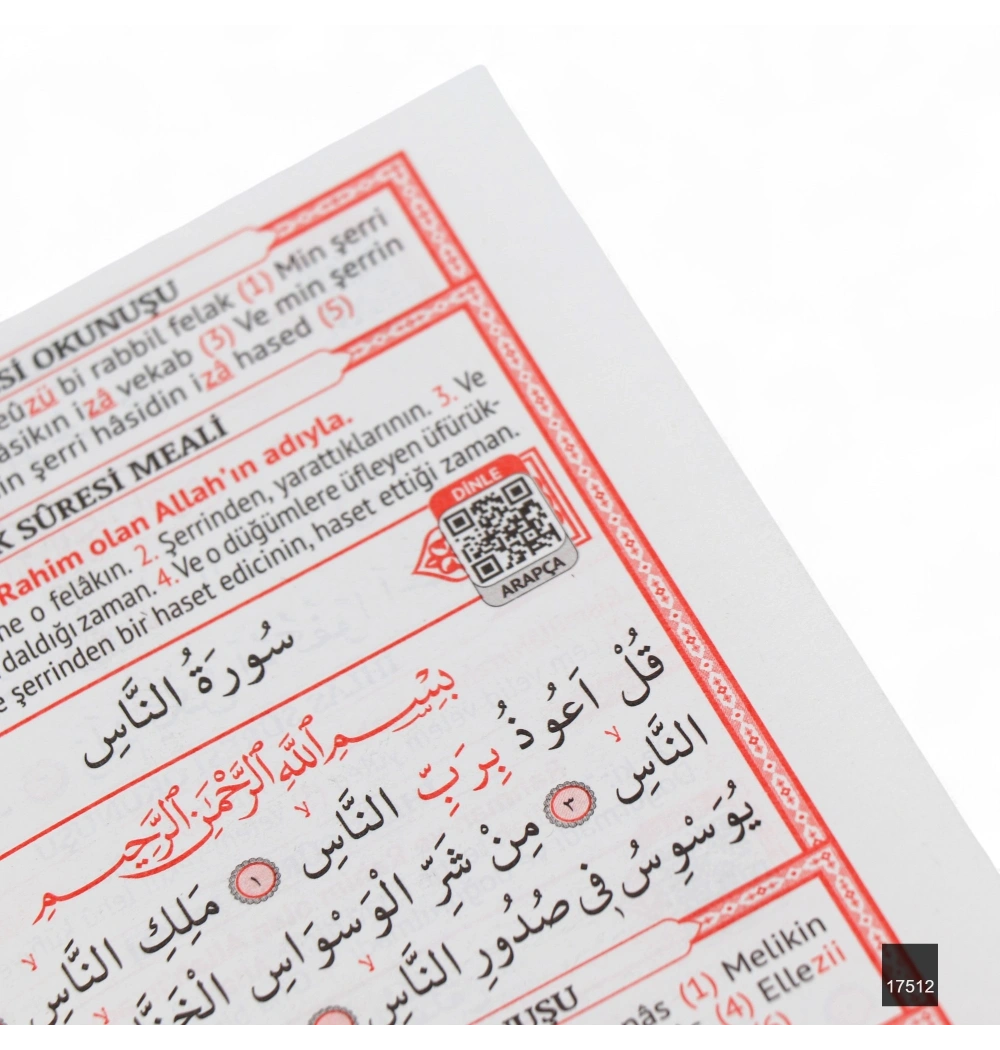 Sİ OKUNUŞU
eûzü bi rabbil felak (1) Min şerri
âsikın izâ vekab (3) Ve min şerrin
in şerri hâsidin izâ hased (5)
K SÛRESİ MEALİ
Rahim olan Allah'ın adıyla.
ne o felâkın. 2. Şerrinden, yarattıklarının. 3. Ve
daldığı zaman. 4. Ve o düğümlere üfleyen üfürük-
e şerrinden bir haset edicinin, haset ettiği zaman.
DİNLE
ARAPÇA
سُورَةُ النَّاسِ
بِسْمِ ٱللَّهِ ٱلرَّحْمَٰنِ ٱلرَّحِيمِ
قُلْ اَعُوذُ بِرَبِّ النَّاسِ ١ مَلِكِ النَّاسِ
النَّاسِ ٣ مِنْ شَرِّ الْوَسْوَاسِ الْخَنَّا
يُوَسْوِسُ فِى صُدُورِ النَّاسِ
UŞU
nâs (1) Melikin
(4) Ellezii
17512